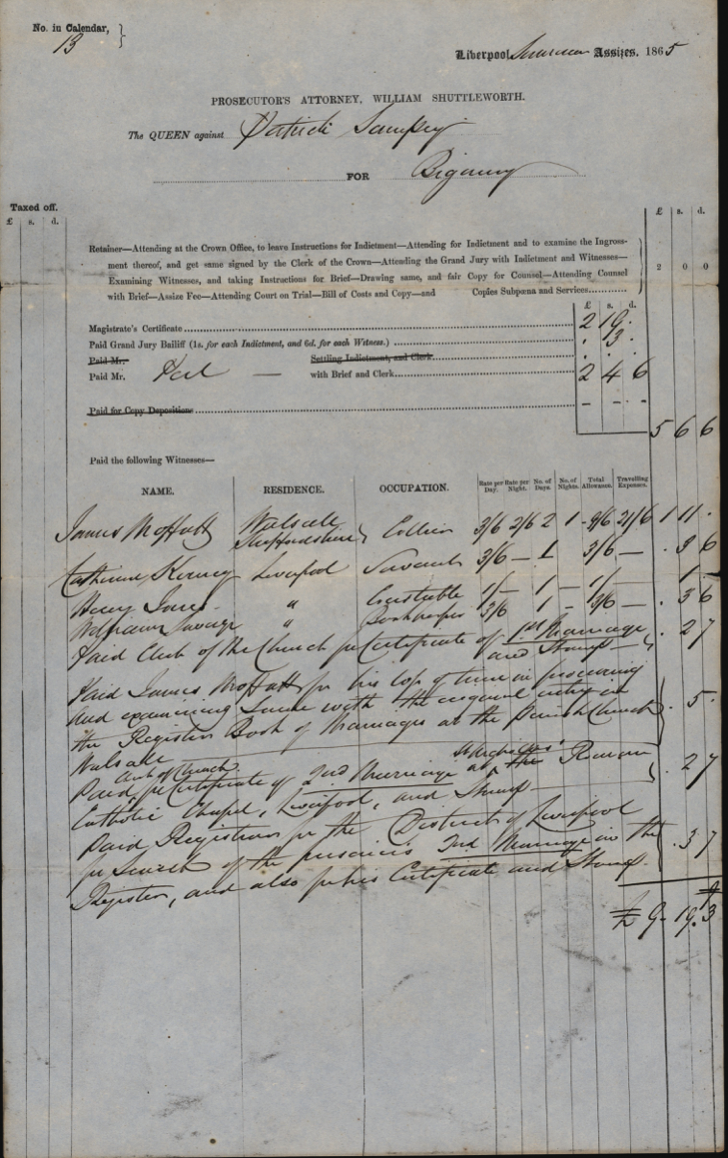 No. in Calendar, }
13
Liverpool Summer Assizes. 1865
PROSECUTOR'S ATTORNEY, WILLIAM SHUTTLEWORTH.
The QUEEN against Patrick Sampey
FOR Bigamy
Taxed off.
£ s. d.
£ s. d.
Retainer—Attending at the Crown Office, to leave Instructions for Indictment—Attending for Indictment and to examine the Ingross-
ment thereof, and get same signed by the Clerk of the Crown—Attending the Grand Jury with Indictment and Witnesses—
Examining Witnesses, and taking Instructions for Brief—Drawing same, and fair Copy for Counsel—Attending Counsel 2 0 0
with Brief—Assize Fee—Attending Court on Trial—Bill of Costs and Copy—and Copies Subpœna and Services
£ s. d.
Magistrate's Certificate 2 19 .
Paid Grand Jury Bailiff (1s. for each Indictment, and 6d. for each Witness.) . 3 .
Paid Mr. Settling Indictment, and Clerk . . .
Paid Mr. — with Brief and Clerk 2 4 6
Paid for Copy Depositions – – –
5 6 6
Paid the following Witnesses—
NAME. RESIDENCE. OCCUPATION. Rate per Day. Rate per Night. No. of Days. No. of Nights. Total Allowance. Travelling Expenses.
James Moffatt Walsall Staffordshire } Collier 3/6 2/6 2 1 9/6 21/6 1 11 .
Catherine Liverpool Servant 3/6 — 1 3/6 — . 3 6
Henry Jones " Constable 1/– – 1 – 1/– – . 1 –
William Savage " Bookkeeper 3/6 1 – 3/6 — . 3 6
Paid Clerk of the Church for Certificate of 1st Marriage
and Stamp } . 2 7
Paid James Moffatt for his loss of time in procuring
and examining same with the original entry in
the Register Book of Marriages at the Parish Church } . 5 .
Walsall
Clerk of Church
Paid for Certificate of 2nd Marriage at Roman
Catholic Chapel, Liverpool, and Stamp } . 2 7
Paid Registrar for the District of Liverpool
for Search of the prisoner's 2nd Marriage in the
Register, and also for his Certificate and Stamp. } . 3 7
£ 9 . 19 . 3